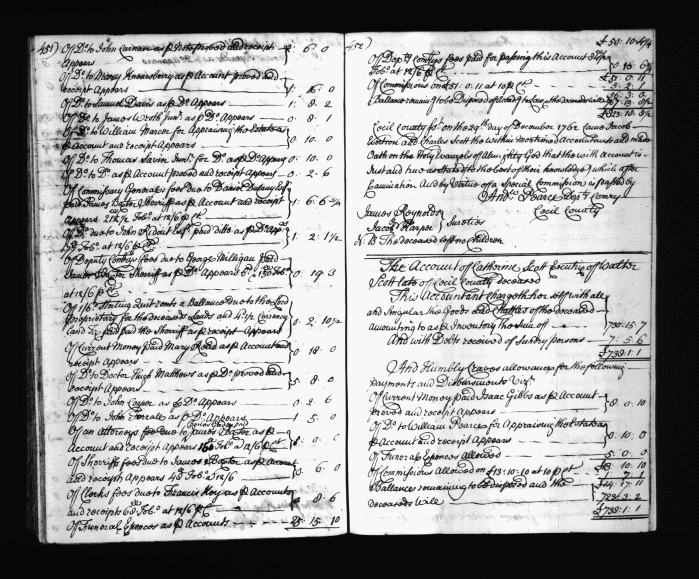 451)
Of Do. to John Carnan as p Note proved and receipt
Appears 6 0
Of Do. to Mary as p Account proved and
receipt Appears 1. 6. 0
Of Do. to Samuel Davis as p Do. Appears 1: 8. 2
Of Do. to James Wroth Junr. as p Do. Appears 0. 8. 1
Of Do. to William Pearce for Appraising the Estate as
p Account and receipt Appears 0. 10. 0
Of Do. to Thomas Savin Junr. for Do. as p Do. Appears 0. 10. 0
Of Do. to Do. as p Account proved and receipt Appears 0. 2. 6
Of Commissary Generals fees due to Daniel Dulany Esqr.
paid James Baxter Sherriff as p Account and receipt
Appears Tobo. at 12/6 p Ct. 1. 6. 6 3/4
Of Do. due to John Ridout Esqr. paid ditto as p Do. Appears
Tobo. at 12/6 p Ct. 1. 2. 1 1/2
Of Deputy Comrys fees due to George Milligan paid
James Baxter Sherriff as p Do. Appears Tobo.
at 12/6 p Ct. 0. 19. 3
Of Sterling Quit rents a Ballance due to the Lord
Proprietary for the deceased Lands and Currency
paid the Sherriff as p receipt Appears 0. 2. 10 1/2
Of Current Money paid Mary Read as p Account and
receipt Appears 0. 18. 0
Of Do. to Doctor Hugh Matthews as p Do. proved and
receipt Appears 5. 8. 0
Of Do. to John Cooper as p Do. Appears 0. 2. 6
Of Do. to John as p Do. Appears 1. 5. 0
Of an attorneys fee due to James Baxter as p
Account and receipt Appears Tobo. at 12/6 p Ct.
Of Sherriff fees due to James Baxter as p Account
and receipt Appears 48 Tobo. at 12/6 6. 0
Of Clerks fees due to Francis Key as p Accounts
and receipts 68 Tobo. at 12/6 p Ct. 8. 6
Of Funeral Expences as p Accounts 25. 15. 10
452)
£50: 10: 4 1/4
Of Depty Comrys fees paid for passing this Account
Tobo. at 12/6 p Ct.
Of Commissions on £51. 0. 11 at 10 p Ct. 5. 2. 1
Ballance remaining to be Disposed of
Cecil County ss. on the 29th day of December 1762 Came Jacob
and Charles Scott the within mentioned Accountants and made
Oath on the Holy Evangels of Almighty God that the with Account is
Just and true as stated to the best of their knowledge which after
Examination And by Vertue of a Special Commission is passed by
Pearce Depty Comry
Cecil County
James Reynolds
Jacob Harper } Sureties
N.B. The deceased left no Children
The Account of Catharine Scott Executrix of Walter
Scott late of Cecil County deceased
This Accountant chargeth her self with all
and Singular the Goods and Chattles of the deceased
amounting to as p Inventory the sum of 730: 15. 7
And with Debts received of Sundry persons 7: 5. 6
£738: 1: 1
And Humbly Craves allowance for the following
Payments and Disbursments Vizt.
Of Current Money paid Isaac Gibbs as p Account
proved and receipt Appears 8. 0. 10
Of Do. to William Pearce for Appraising the Estate as
p Account and receipt Appears 0. 10. 0
Of Funeral Expences Allowed 5. 0. 0
Of Commissions Allowed on £13: 10: 10 at 10 p Ct.
Ballance remaining to be disposed and the £14. 17. 11
deceaseds Will 723. 3. 2
£738: 1: 1